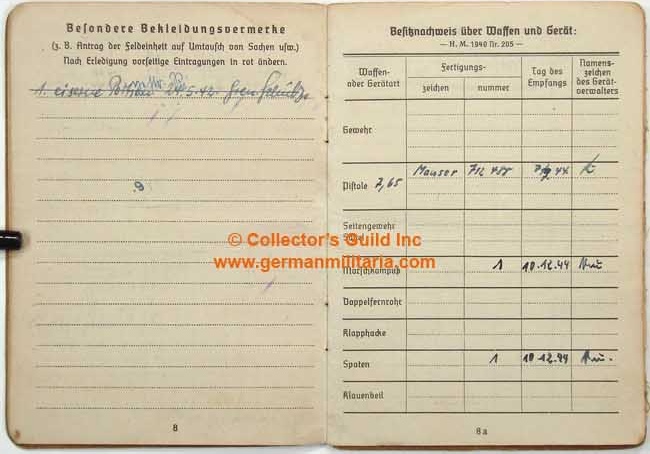 Besondere Bekleidungsvermerke
(z. B. Antrag der Feldeinheit auf Umtausch von Sachen usw.)
Nach Erledigung vorseitige Eintragungen in rot ändern.
1. eiserne Portion 24.5.42.
8
Besitznachweis über Waffen und Gerät:
— H. M. 1940 Nr. 205 —
Waffen- oder Geräteart
Fertigungs-
zeichen nummer
Tag des Empfangs
Namenszeichen des Geräteverwalters
Gewehr
Pistole 7,65 Mauser
Seitengewehr
© Collector's Guild Inc
www.germanmilitaria.com
Marschkompaß 1 10.12.44
Doppelfernrohr
Klapphacke
Spaten 1 10.12.44
Klauenbeil
8a